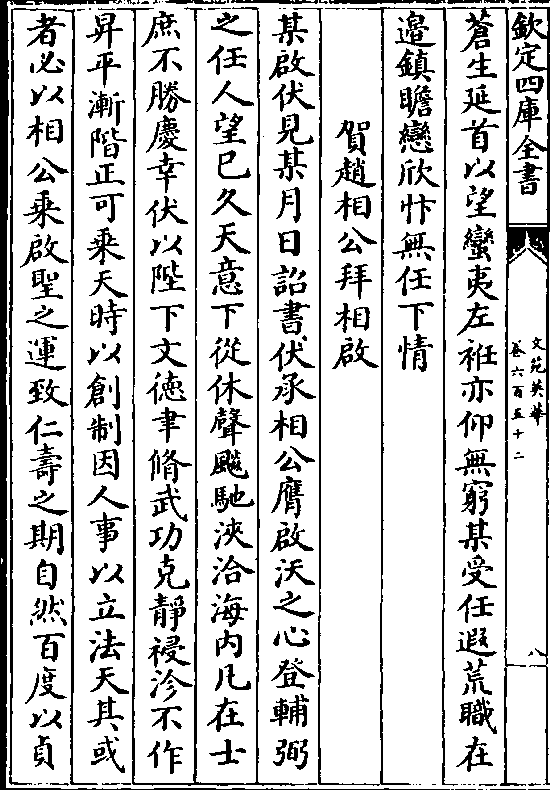 欽定四庫全書
文苑英華
卷六百五十二
八
蒼生延首以望蠻夷左袵亦仰無窮某受任遐荒職在
邉鎮瞻戀欣忭無任下情
賀趙相公拜相啟
某啟伏見某月日詔書伏承相公膺啟沃之心登輔弼
之任人望已久天意下從休聲飈馳浹洽海内凡在士
庶不勝慶幸伏以陛下文德聿脩武功克靜祲沴不作
昇平漸階正可乘天時以創制因人事以立法天其或
者必以相公乘啟聖之運致仁壽之期自然百度以貞